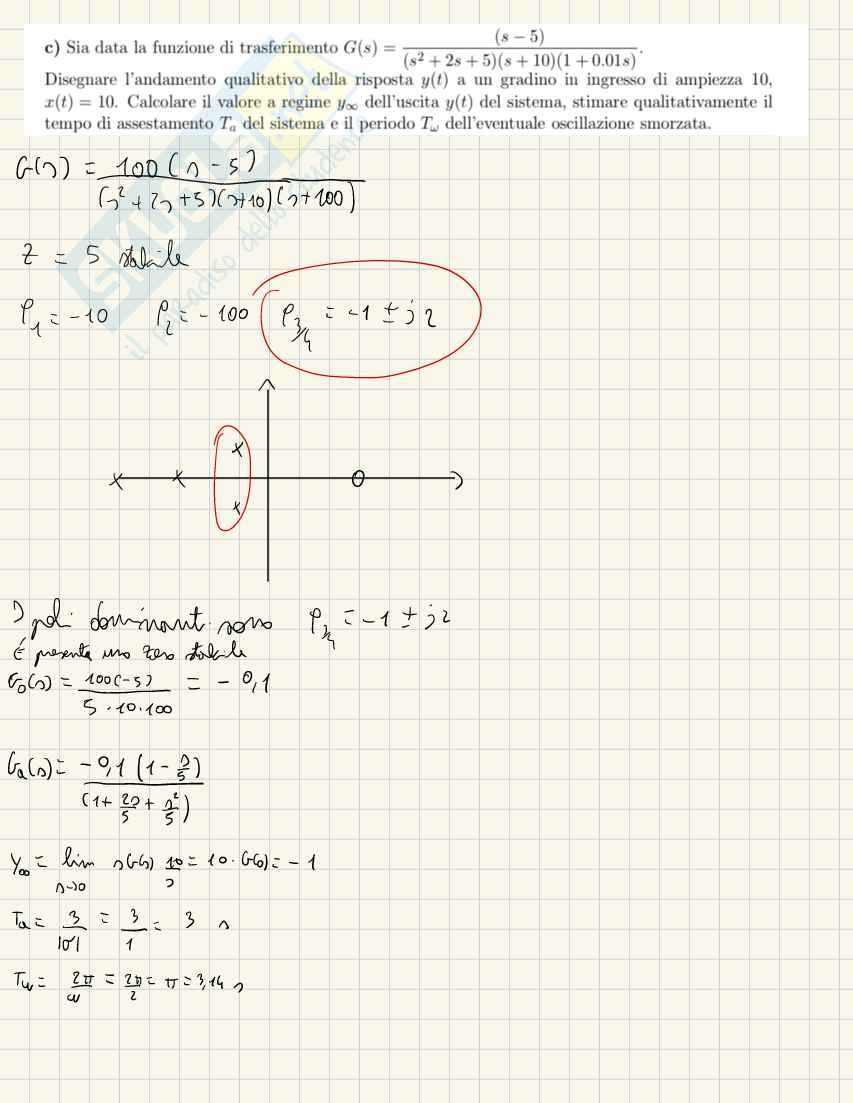 c) Sia data la funzione di trasferimento G(s) = (s − 5) / ((s² + 2s + 5)(s + 10)(1 + 0.01s)).
Disegnare l'andamento qualitativo della risposta y(t) a un gradino in ingresso di ampiezza 10,
x(t) = 10. Calcolare il valore a regime y∞ dell'uscita y(t) del sistema, stimare qualitativamente il
tempo di assestamento Ta del sistema e il periodo Tω dell'eventuale oscillazione smorzata.
G(s) = 100(s − 5) / ((s² + 2s + 5)(s+10)(s+100))
Z = 5 stabile
P1 = −10 P2 = −100 P3/4 = −1 ± j2
I poli dominanti sono P3/4 = −1 ± j2
È presente uno zero stabile
G0(s) = 100(−5) / (5 · 10 · 100) = − 0,1
Ga(s) = −0,1 (1 − s/5) / (1 + 2s/5 + s²/5)
Y∞ = lim s→0 s G(s) 10/s = 10 · G(0) = − 1
Ta = 3/|σ| = 3/1 = 3 s
Tω = 2π/ω = 2π/2 = π = 3,14 s
il paradiso dello studente